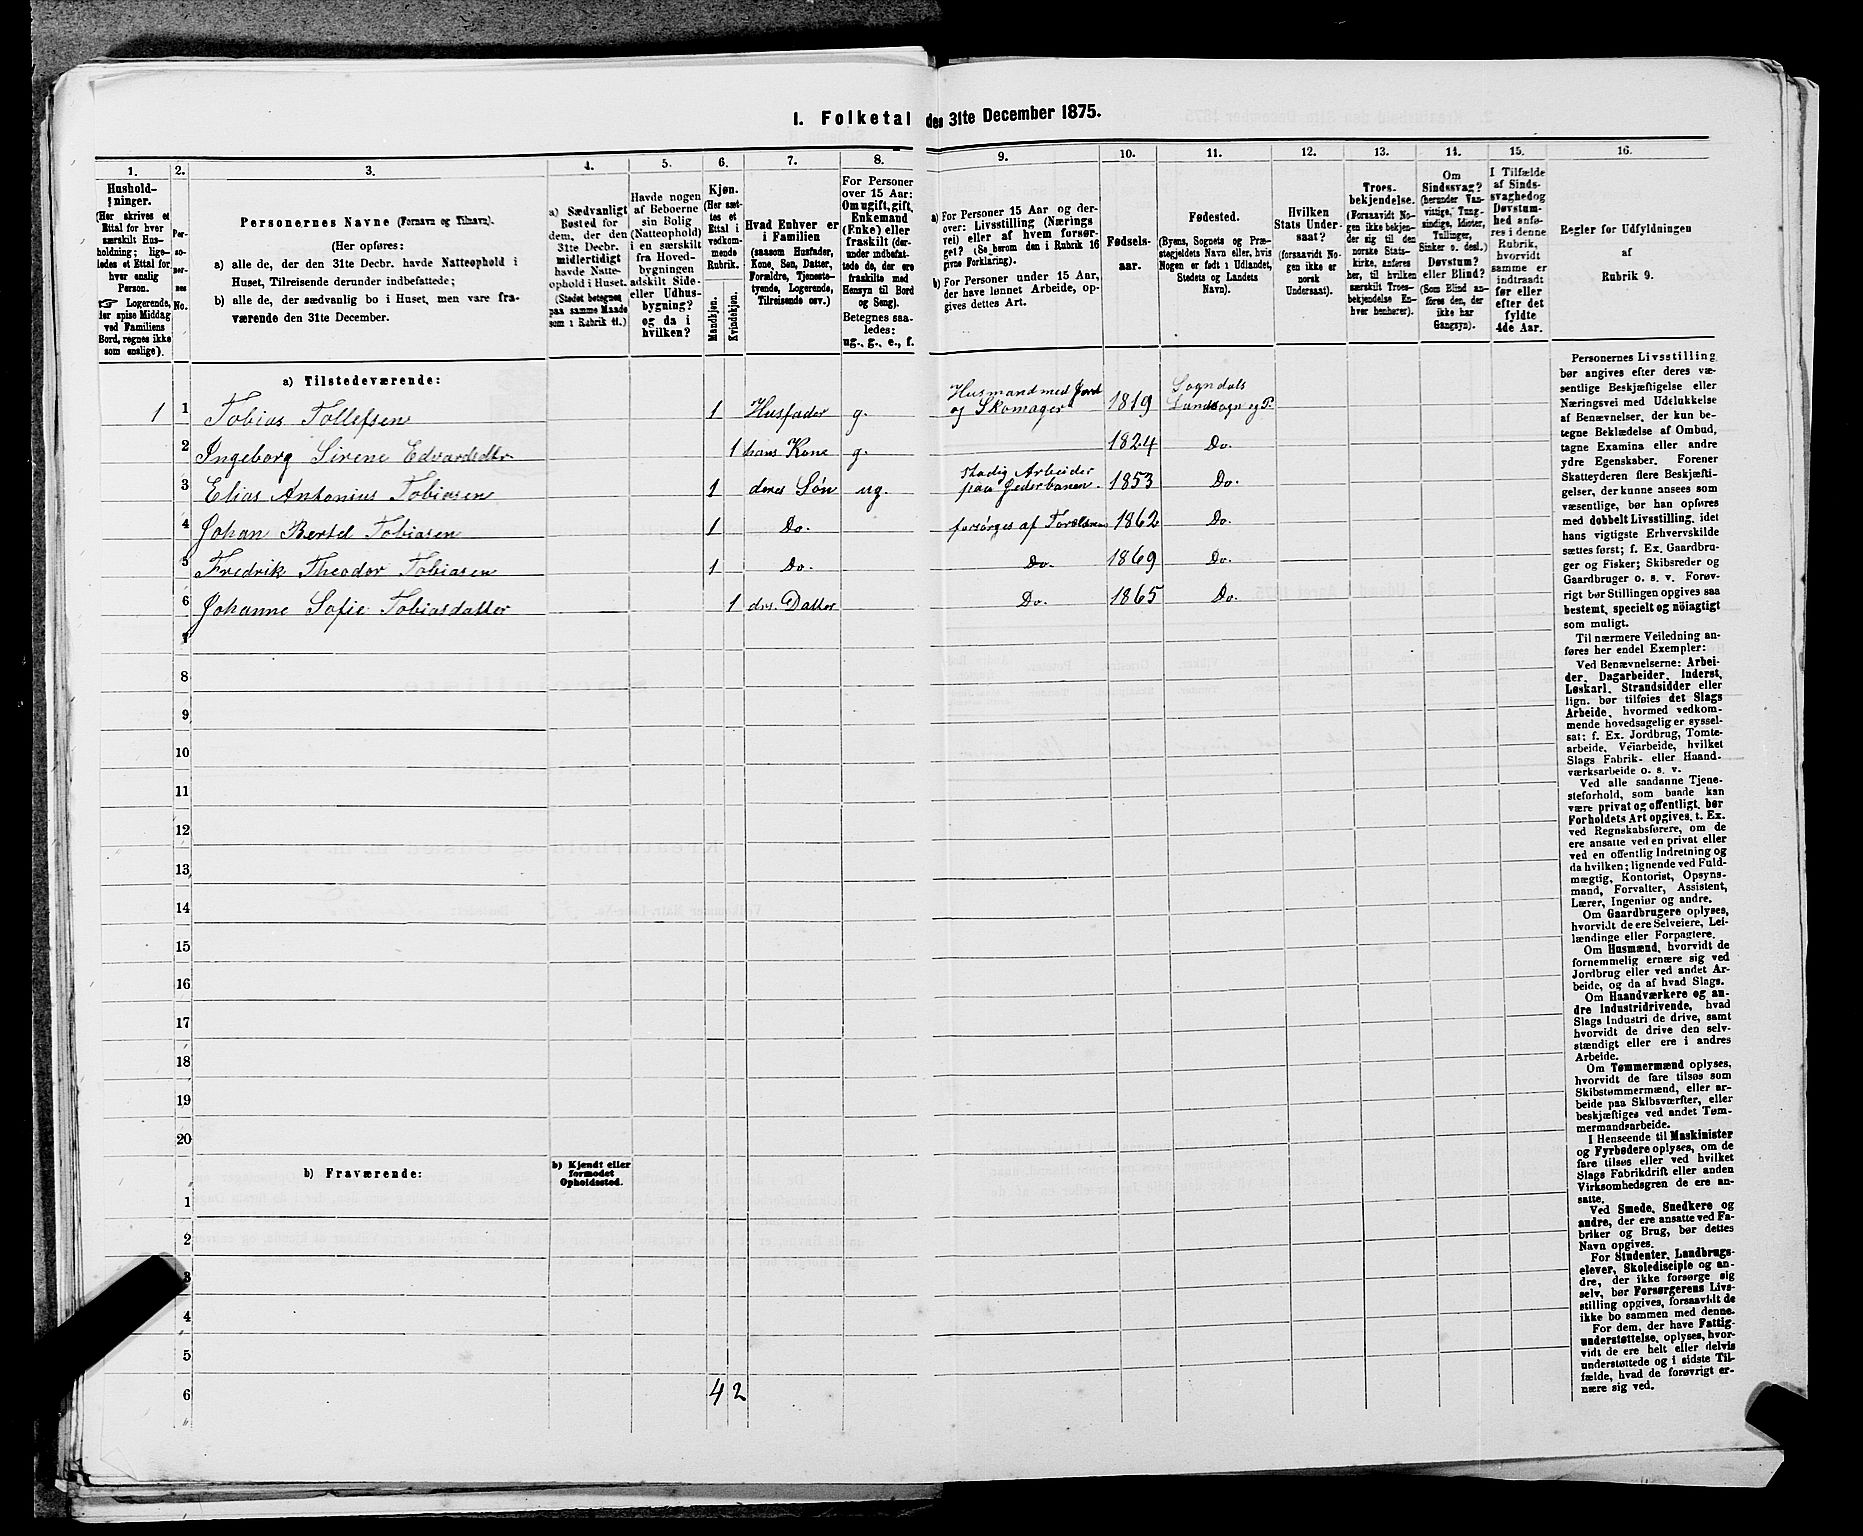 1. Folketal den 31te December 1875.
1.
2.
3.
4.
5.
6.
7.
8.
9.
10.
11.
12.
13.
14.
15.
16.
Hushold-
ninger.
(Her skrives et
Ettal for hver
særskilt Hus-
holdning; lige-
ledes et Ettal for
hver enslig
Person.
☞ Logerende,
der spise Middag
ved Familiens
Bord, regnes ikke
som enslige).
Per-
so-
ner-
nes
No.
Personernes Navne (Fornavn og Tilnavn).
(Her opføres:
a) alle de, der den 31te Decbr. havde Natteophold i
Huset, Tilreisende derunder indbefattede;
b) alle de, der sædvanlig bo i Huset, men vare fra-
værende den 31te December.
a) Sædvanligt
Bosted for
dem, der den
31te Decbr.
midlertidigt
havde Natte-
ophold i Huset.
(Stedet betegnes
paa samme Maade
som i Rubrik 11.)
Havde nogen
af Beboerne
sin Bolig
(Natteophold)
i en særskilt
fra Hoved-
bygningen
adskilt Side-
eller Udhus-
bygning?
og da i
hvilken?
Kjøn.
(Her sæt-
tes et
Ettal i
vedkom-
mende
Rubrik.
Mandkjøn.
Kvindekjøn.
Hvad Enhver er
i Familien
(saasom Husfader,
Kone, Søn, Datter,
Forældre, Tjeneste-
tyende, Logerende,
Tilreisende osv.)
For Personer
over 15 Aar:
Om ugift, gift,
Enkemand
(Enke) eller
fraskilt (der-
under indbefat-
tede de, der ere
fraskilte med
Hensyn til Bord
og Seng).
Betegnes saa-
ledes:
ug., g., e., f.
a) For Personer 15 Aar og der-
over: Livsstilling (Nærings
vei) eller af hvem forsør-
get? (Se herom den i Rubrik 16
givne Forklaring).
b) For Personer under 15 Aar,
der have lønnet Arbeide, op-
gives dettes Art.
Fødsels-
aar.
Fødested.
(Byens, Sognets og Præ-
stegjeldets Navn eller, hvis
Nogen er født i Udlandet,
Stedets og Landets
Navn).
Hvilken
Stats Under-
saat?
(forsaavidt No-
gen ikke er
norsk
Undersaat).
Troes-
bekjendelse.
(Forsaavidt No-
gen ikke bekjen-
der sig til den
norske Stats-
kirke, anføres
her, til hvilken
særskilt Troes-
bekjendelse En-
hver henhører).
Om
Sindssvag?
(herunder Van-
vittige, Tung-
sindige, Idioter,
Tullinger,
Sinker o. desl.)
Døvstum?
eller Blind?
(Som Blind an-
føres den, der
ikke har
Gangsyn).
I Tilfælde
af Sinds-
svaghed og
Døvstum-
hed anfø-
res i denne
Rubrik,
hvorvidt
samme er
indtraadt
før eller
efter det
fyldte
4de Aar.
Regler for Udfyldningen
af
Rubrik 9.
a) Tilstedeværende:
1 1 Tobias Tollefsen 1 Husfader g. Husmand med Jord og Skomager 1819 Sogndals Landsogn og P.
2 Ingeborg Sirene Edvardsdtr 1 hans Kone g. 1824 Do.
3 Elias Antonius Tobiasen 1 deres Søn ug. stadig Arbeider paa Jederbanen. 1853 Do.
4 Johan Bertel Tobiasen 1 Do. forsørges af Forældrene 1862 Do.
5 Fredrik Theodor Tobiasen 1 Do. Do. 1869 Do.
6 Johanne Sofie Tobiasdatter 1 drs. Datter Do. 1865 Do.
7
8
9
10
11
12
13
14
15
16
17
18
19
20
b) Fraværende:
b) Kjendt eller
formodet
Opholdssted.
1
2
3
4
5
6
4 2
Personernes Livsstilling
bør angives efter deres væ-
sentlige Beskjæftigelse eller
Næringsvei med Udelukkelse
af Benævnelser, der kun be-
tegne Beklædelse af Ombud,
tagne Examina eller andre
ydre Egenskaber. Forener
Skatteyderen flere Beskjæfti-
gelser, der kunne ansees som
væsentlige, bør han opføres
med dobbelt Livsstilling, idet
hans vigtigste Erhvervskilde
sættes først; f. Ex. Gaardbru-
ger og Fisker; Skibsreder og
Gaardbruger o. s. v. Forøv-
rigt bør Stillingen opgives saa
bestemt, specielt og nöiagtigt
som muligt.
Til nærmere Veiledning an-
føres her endel Exempler:
Ved Benævnelserne: Arbei-
der, Dagarbeider, Inderst,
Løskarl, Strandsidder eller
lign. bør tilføies det Slags
Arbeide, hvormed vedkom-
mende hovedsagelig er syssel-
sat; f. Ex. Jordbrug, Tomte-
arbeide, Veiarbeide, hvilket
Slags Fabrik- eller Haand-
værksarbeide o. s. v.
Ved alle saadanne Tjene-
steforhold, som baade kan
være privat og offentligt, bør
Forholdets Art opgives. t. Ex.
ved Regnskabsførere, om de
ere ansatte ved en privat eller
ved en offentlig Indretning og
da hvilken; lignende ved Fuld-
mægtig, Kontorist, Opsyns-
mand, Forvalter, Assistent,
Lærer, Ingeniør og andre.
Om Gaardbrugere oplyses,
hvorvidt de ere Selveiere, Lei-
lændinge eller Forpagtere.
Om Husmænd, hvorvidt de
fornemmelig ernære sig ved
Jordbrug eller ved andet Ar-
beide, og da af hvad Slags.
Om Haandværkere og an-
dre Industridrivende, hvad
Slags Industri de drive, samt
hvorvidt de drive den selv-
stændigt eller ere i andres
Arbeide.
Om Tømmermænd oplyses,
hvorvidt de fare tilsøs som
Skibstømmermænd, eller ar-
beide paa Skibsværfter, eller
beskjæftiges ved andet Tøm-
mermandsarbeide.
I Henseende til Maskinister
og Fyrbødere oplyses, om de
fare tilsøs eller ved hvilket
Slags Fabrikdrift eller anden
Virksomhedsgren de ere an-
satte.
Ved Smede, Snedkere og
andre, der ere ansatte ved Fa-
briker og Brug, bør dettes
Navn opgives.
For Studenter, Landbrugs-
elever, Skoledisciple og an-
dre, der ikke forsørge sig
selv, bør Forsørgerens Livs-
stilling opgives, forsaavidt de
ikke bo sammen med denne.
For dem, der have Fattig-
understøttelse, oplyses, hvor-
vidt de ere helt eller delvis
understøttede og i sidste Til-
fælde, hvad de forøvrigt er-
nære sig ved.